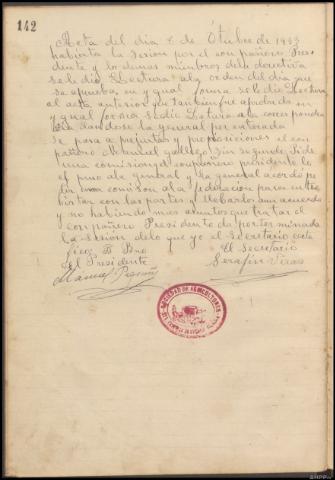 142
Acta del dia 8 de Otubre de 1933
habierta la sesion por el conpañero Presi
dente y lo demas miembros dela directiva
se le dio Lectura ala orden del dia que
se aprueba, en y gual forma se le dio Lectura
al acta anterior que tambien fue aprobada en
y gual forma se dio Letura ala correspondencia
dandose la general por enterada
Se pasa a prejuntas y proposiciones el con
pañero Manuel
una comision, el conpañero presidente lo
puso ala general y la general acordó
una comison ala
bistar con las partes y llebarlo aun acuerdo
y no habiendo mas asuntos que tratar el
conpañero Presidente da por terminada
la sesion delo que yo el Secretario certi
fico Vº Bno
El Presidente
El Secretario
Manuel
Serafin Viras
SOCIEDAD DE AGRICULTORES